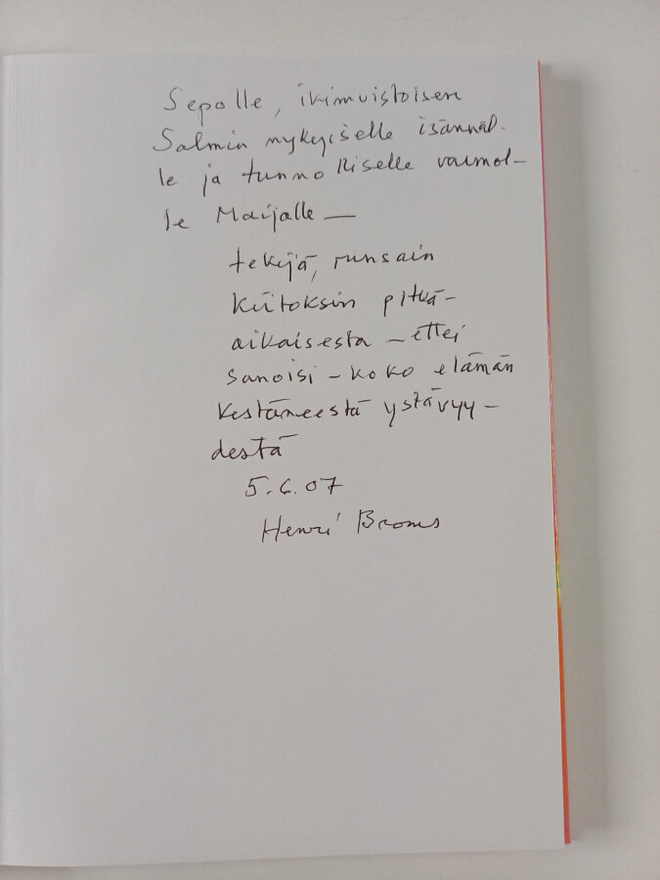 Sepolle, ikimuistoisen
Salmin nykyiselle isännäl-
le ja tunnolliselle vaimol-
le Maijalle —
tekijä, runsain
kiitoksin pitkä-
aikaisesta – ettei
sanoisi – koko elämän
kestäneestä ystävyy-
destä
5.6.07
Henri Broms